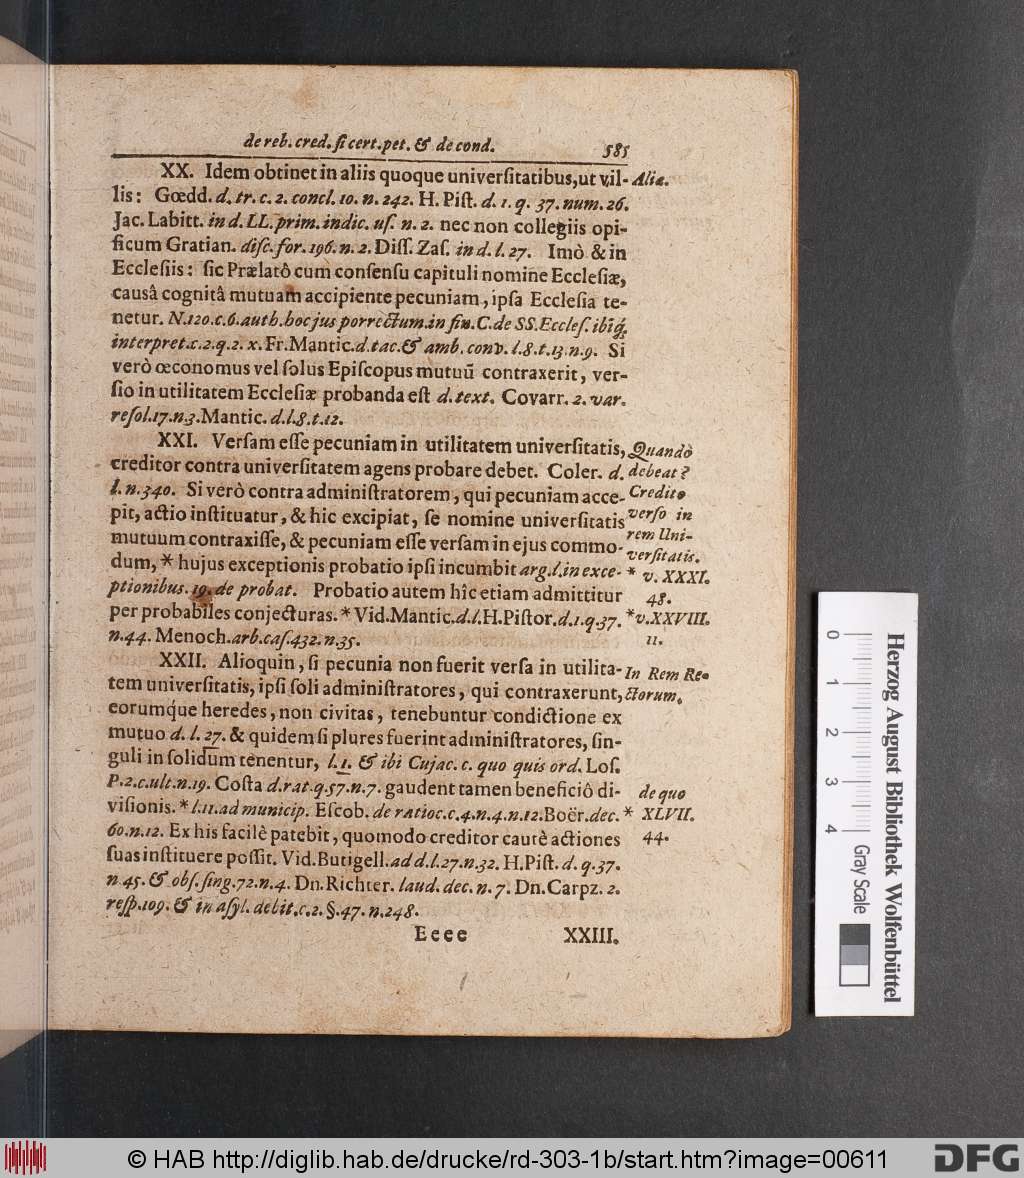 de reb. cred. ſi cert. pet. & de cond. 585
XX. Idem obtinet in aliis quoque univerſitatibus, ut vil-
lis: Gœdd. d. tr. c. 2. concl. 10. n. 242. H. Piſt. d. 1. q. 37. num. 26.
Jac. Labitt. in d. LL. prim. indic. uſ. n. 2. nec non collegiis opi-
ficum Gratian. diſc. for. 196. n. 2. Diſſ. Zaſ. in d. l. 27. Imò & in
Eccleſiis: ſic Prælatô cum conſenſu capituli nomine Eccleſiæ,
causâ cognitâ mutuam accipiente pecuniam, ipſa Eccleſia te-
netur. N. 120. c. 6. auth. hoc jus porrectum. in fin. C. de SS. Eccleſ. ibiq́;
interpret. c. 2. q. 2. x. Fr. Mantic. d. tac. & amb. conv. l. 8. t. 13. n. 9. Si
verò œconomus vel ſolus Epiſcopus mutuū contraxerit, ver-
ſio in utilitatem Eccleſiæ probanda eſt d. text. Covarr. 2. var.
reſol. 17. n. 3. Mantic. d. l. 8. t. 12.
Aliæ.
XXI. Verſam eſſe pecuniam in utilitatem univerſitatis,
creditor contra univerſitatem agens probare debet. Coler. d.
l. n. 340. Si verò contra adminiſtratorem, qui pecuniam acce-
pit, actio inſtituatur, & hic excipiat, ſe nomine univerſitatis
mutuum contraxiſſe, & pecuniam eſſe verſam in ejus commo-
dum, * hujus exceptionis probatio ipſi incumbit arg. l. in exce-
ptionibus. 19. de probat. Probatio autem hîc etiam admittitur
per probabiles conjecturas. * Vid. Mantic. d. l. H. Piſtor. d. 1. q. 37.
n. 44. Menoch. arb. caſ. 432. n. 35.
Quandò
debeat?
Credito
verſo in
rem Uni-
verſitatis.
* v. XXXI.
48.
* v. XXVIII.
11.
XXII. Alioquin, ſi pecunia non fuerit verſa in utilita-
tem univerſitatis, ipſi ſoli adminiſtratores, qui contraxerunt,
eorumq́ue heredes, non civitas, tenebuntur condictione ex
mutuo d. l. 27. & quidem ſi plures fuerint adminiſtratores, ſin-
guli in ſolidum tenentur, l. 1. & ibi Cujac. c. quo quis ord. Loſ.
P. 2. c. ult. n. 19. Coſta d. rat. q. 57. n. 7. gaudent tamen beneficiô di-
viſionis. * l. 11. ad municip. Eſcob. de ratioc. c. 4. n. 4. n. 12. Boër. dec.
60. n. 12. Ex his facilè patebit, quomodo creditor cautè actiones
ſuas inſtituere poſſit. Vid. Butigell. ad d. l. 27. n. 32. H. Piſt. d. q. 37.
n. 45. & obſ. ſing. 72. n. 4. Dn. Richter. laud. dec. n. 7. Dn. Carpz. 2.
reſp. 109. & in aſyl. debit. c. 2. §. 47. n. 248.
In Rem Re-
ctorum.
de quo
* XLVII.
44.
Eeee XXIII.
0 1 2 3 4
Gray Scale
Herzog August Bibliothek Wolfenbüttel
© HAB http://diglib.hab.de/drucke/rd-303-1b/start.htm?image=00611
DFG